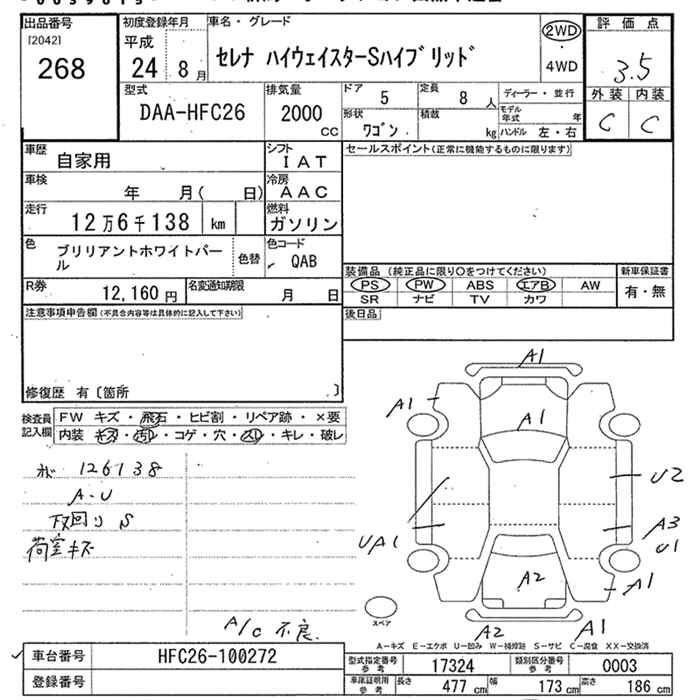 出品番号
[2042]
268
初度登録年月
平成
24 8月
車名・グレード
セレナ ハイウェイスターSハイブリッド
2WD
・
4WD
評価点
3.5
外装 内装
C C
型式
DAA-HFC26
排気量
2000
CC
ドア 5
定員 8人
ディーラー・並行
形状 ワゴン
積載 kg
モデル年式 年
ハンドル 左・右
車歴
自家用
シフト
IAT
セールスポイント(正常に機能するものに限ります)
車検
年 月( 日)
冷房
AAC
走行
12万6千138 km
燃料
ガソリン
色
ブリリアントホワイトパール
色替
色コード
QAB
R券
12,160円
名変通知期限
月 日
装備品(純正品に限り○をつけてください)
PS PW ABS エアB AW
SR ナビ TV カワ
新車保証書
有・無
注意事項申告欄(不具合内容等は具体的に記入して下さい)
後日品
修復歴 有〔箇所 〕
検査員記入欄
FW キズ・飛石・ヒビ割・リペア跡・×要
内装 キズ・汚れ・コゲ・穴・スレ・キレ・破レ
126138
A-U
下回り S
荷室キズ
A/C 不良
A1
A1
A1
U2
A3
U1
UA1
A1
A2
A2
A1
スペア
A-キズ E-エクボ U-凹み W-補修跡 S-サビ C-腐食 XX-交換済
車台番号
HFC26-100272
登録番号
型式指定番号参考
17324
類別区分番号参考
0003
車庫証明用参考
長さ 477cm
幅 173cm
高さ 186cm